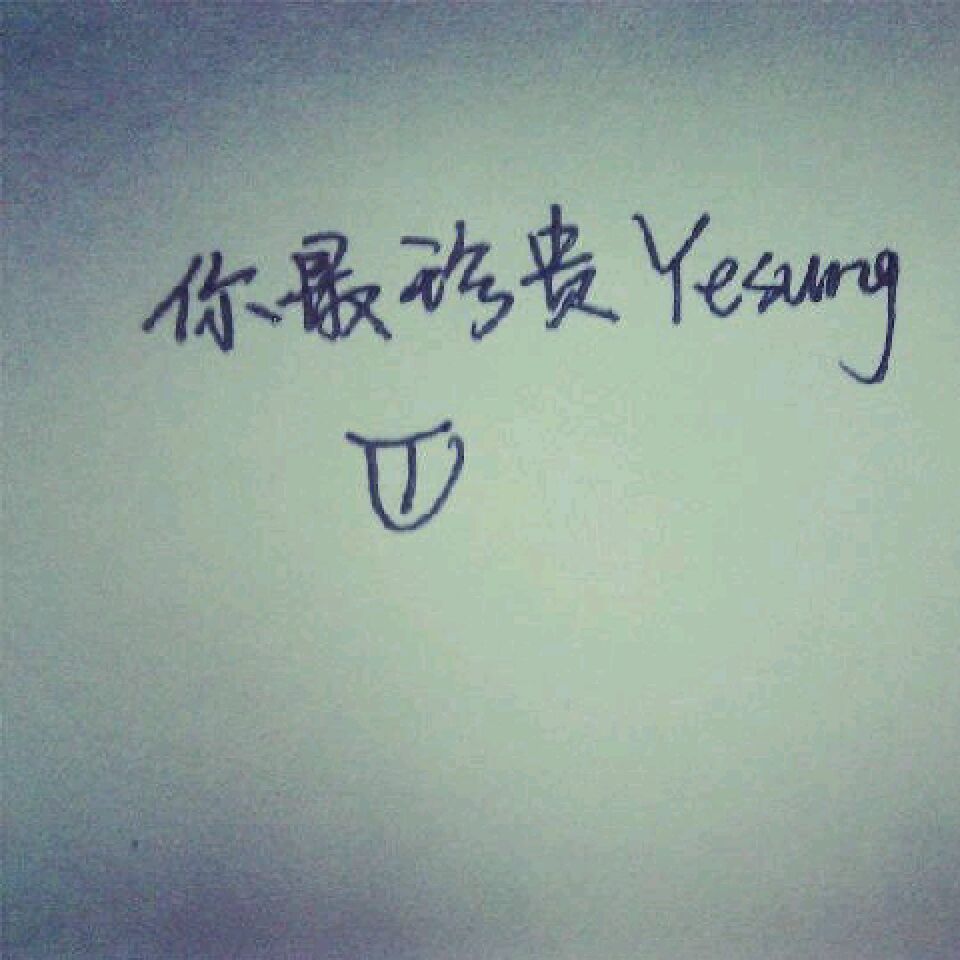 你最珍贵Yesung